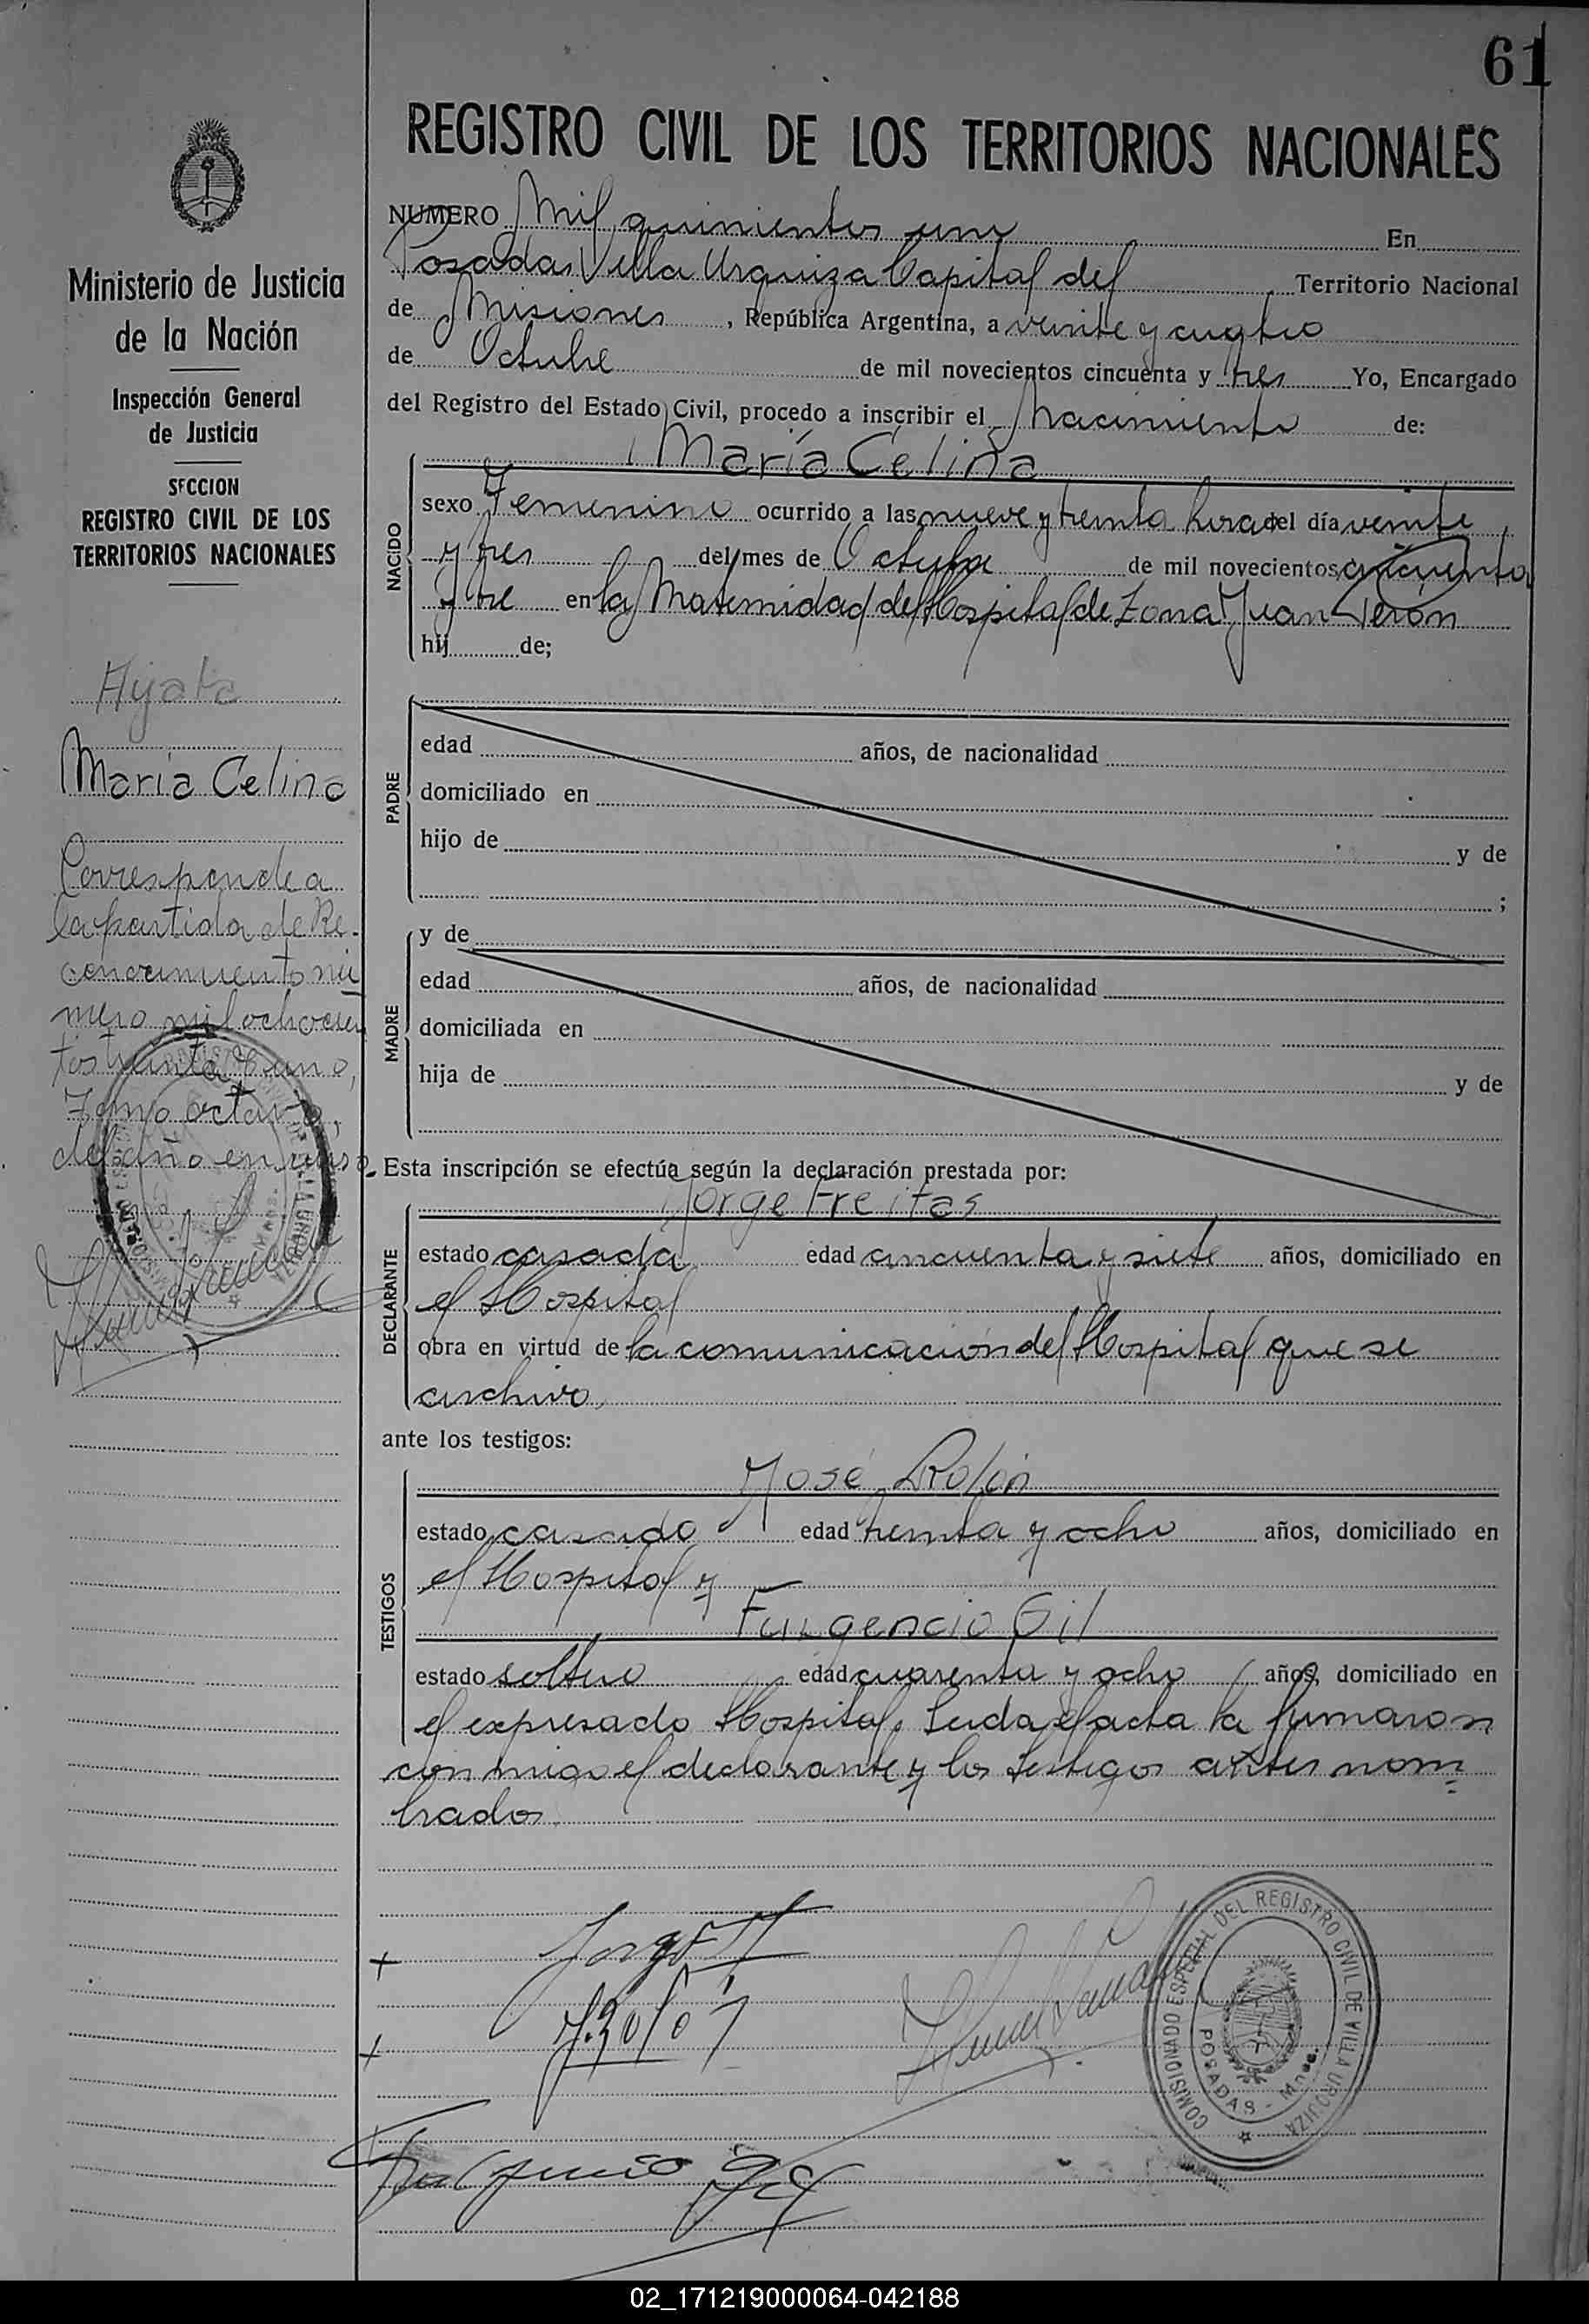 61
REGISTRO CIVIL DE LOS TERRITORIOS NACIONALES
Ministerio de Justicia
de la Nación
Inspección General
de Justicia
SECCION
REGISTRO CIVIL DE LOS
TERRITORIOS NACIONALES
María Celina
Corresponde a
la partida de Re-
conocimiento nú
mero mil ochocien
tos treinta y uno,
Tomo octavo,
del año en curso.
NUMERO Mil quinientos uno En
Posadas Villa Urquiza Capital del Territorio Nacional
de Misiones, República Argentina, a veinte y cuatro
de Octubre de mil novecientos cincuenta y tres Yo, Encargado
del Registro del Estado Civil, procedo a inscribir el Nacimiento de:
NACIDO
María Celina
sexo Femenino ocurrido a las nueve y treinta horas del día veinte
y tres del mes de Octubre de mil novecientos cincuenta
y tre en la Maternidad del Hospital de Zona Juan Perón
hij de;
PADRE
edad años, de nacionalidad
domiciliado en
hijo de y de
;
MADRE
y de
edad años, de nacionalidad
domiciliada en
hija de y de
Esta inscripción se efectúa según la declaración prestada por:
DECLARANTE
Jorge Freitas
estado casado edad cincuenta y siete años, domiciliado en
el Hospital
obra en virtud de la comunicación del Hospital que se
archivo.
ante los testigos:
TESTIGOS
José Rolón
estado casado edad treinta y ocho años, domiciliado en
el Hospital y
Fulgencio Gil
estado soltero edad cuarenta y ocho años, domiciliado en
el expresado Hospital. Leida el acta la firmaron
conmigo el declarante y los testigos antes nom=
brados.
J. Rolón
Fulgencio Gil
COMISIONADO ESPECIAL DEL REGISTRO CIVIL DE VILLA URQUIZA
POSADAS - Mnes.
02_171219000064-042188